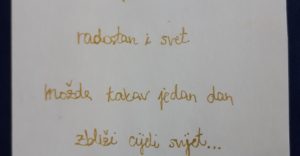 radostan i svet
možda takav jedan dan
zbliži cijeli svijet...